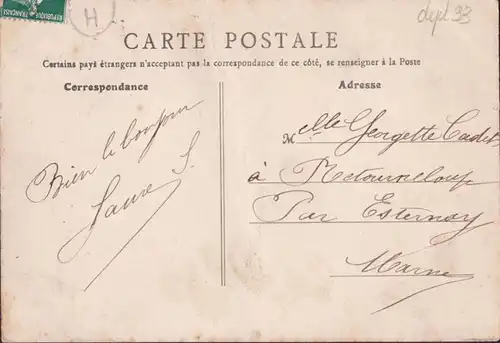 REPUBLIQUE FRANÇAISE
H
dept 93
CARTE POSTALE
Certains pays étrangers n'acceptant pas la correspondance de ce côté, se renseigner à la Poste
Correspondance
Adresse
Bien le bonjour
Laure S.
Melle Georgette Cadet
à Retourneloup
Par Esternay
Marne